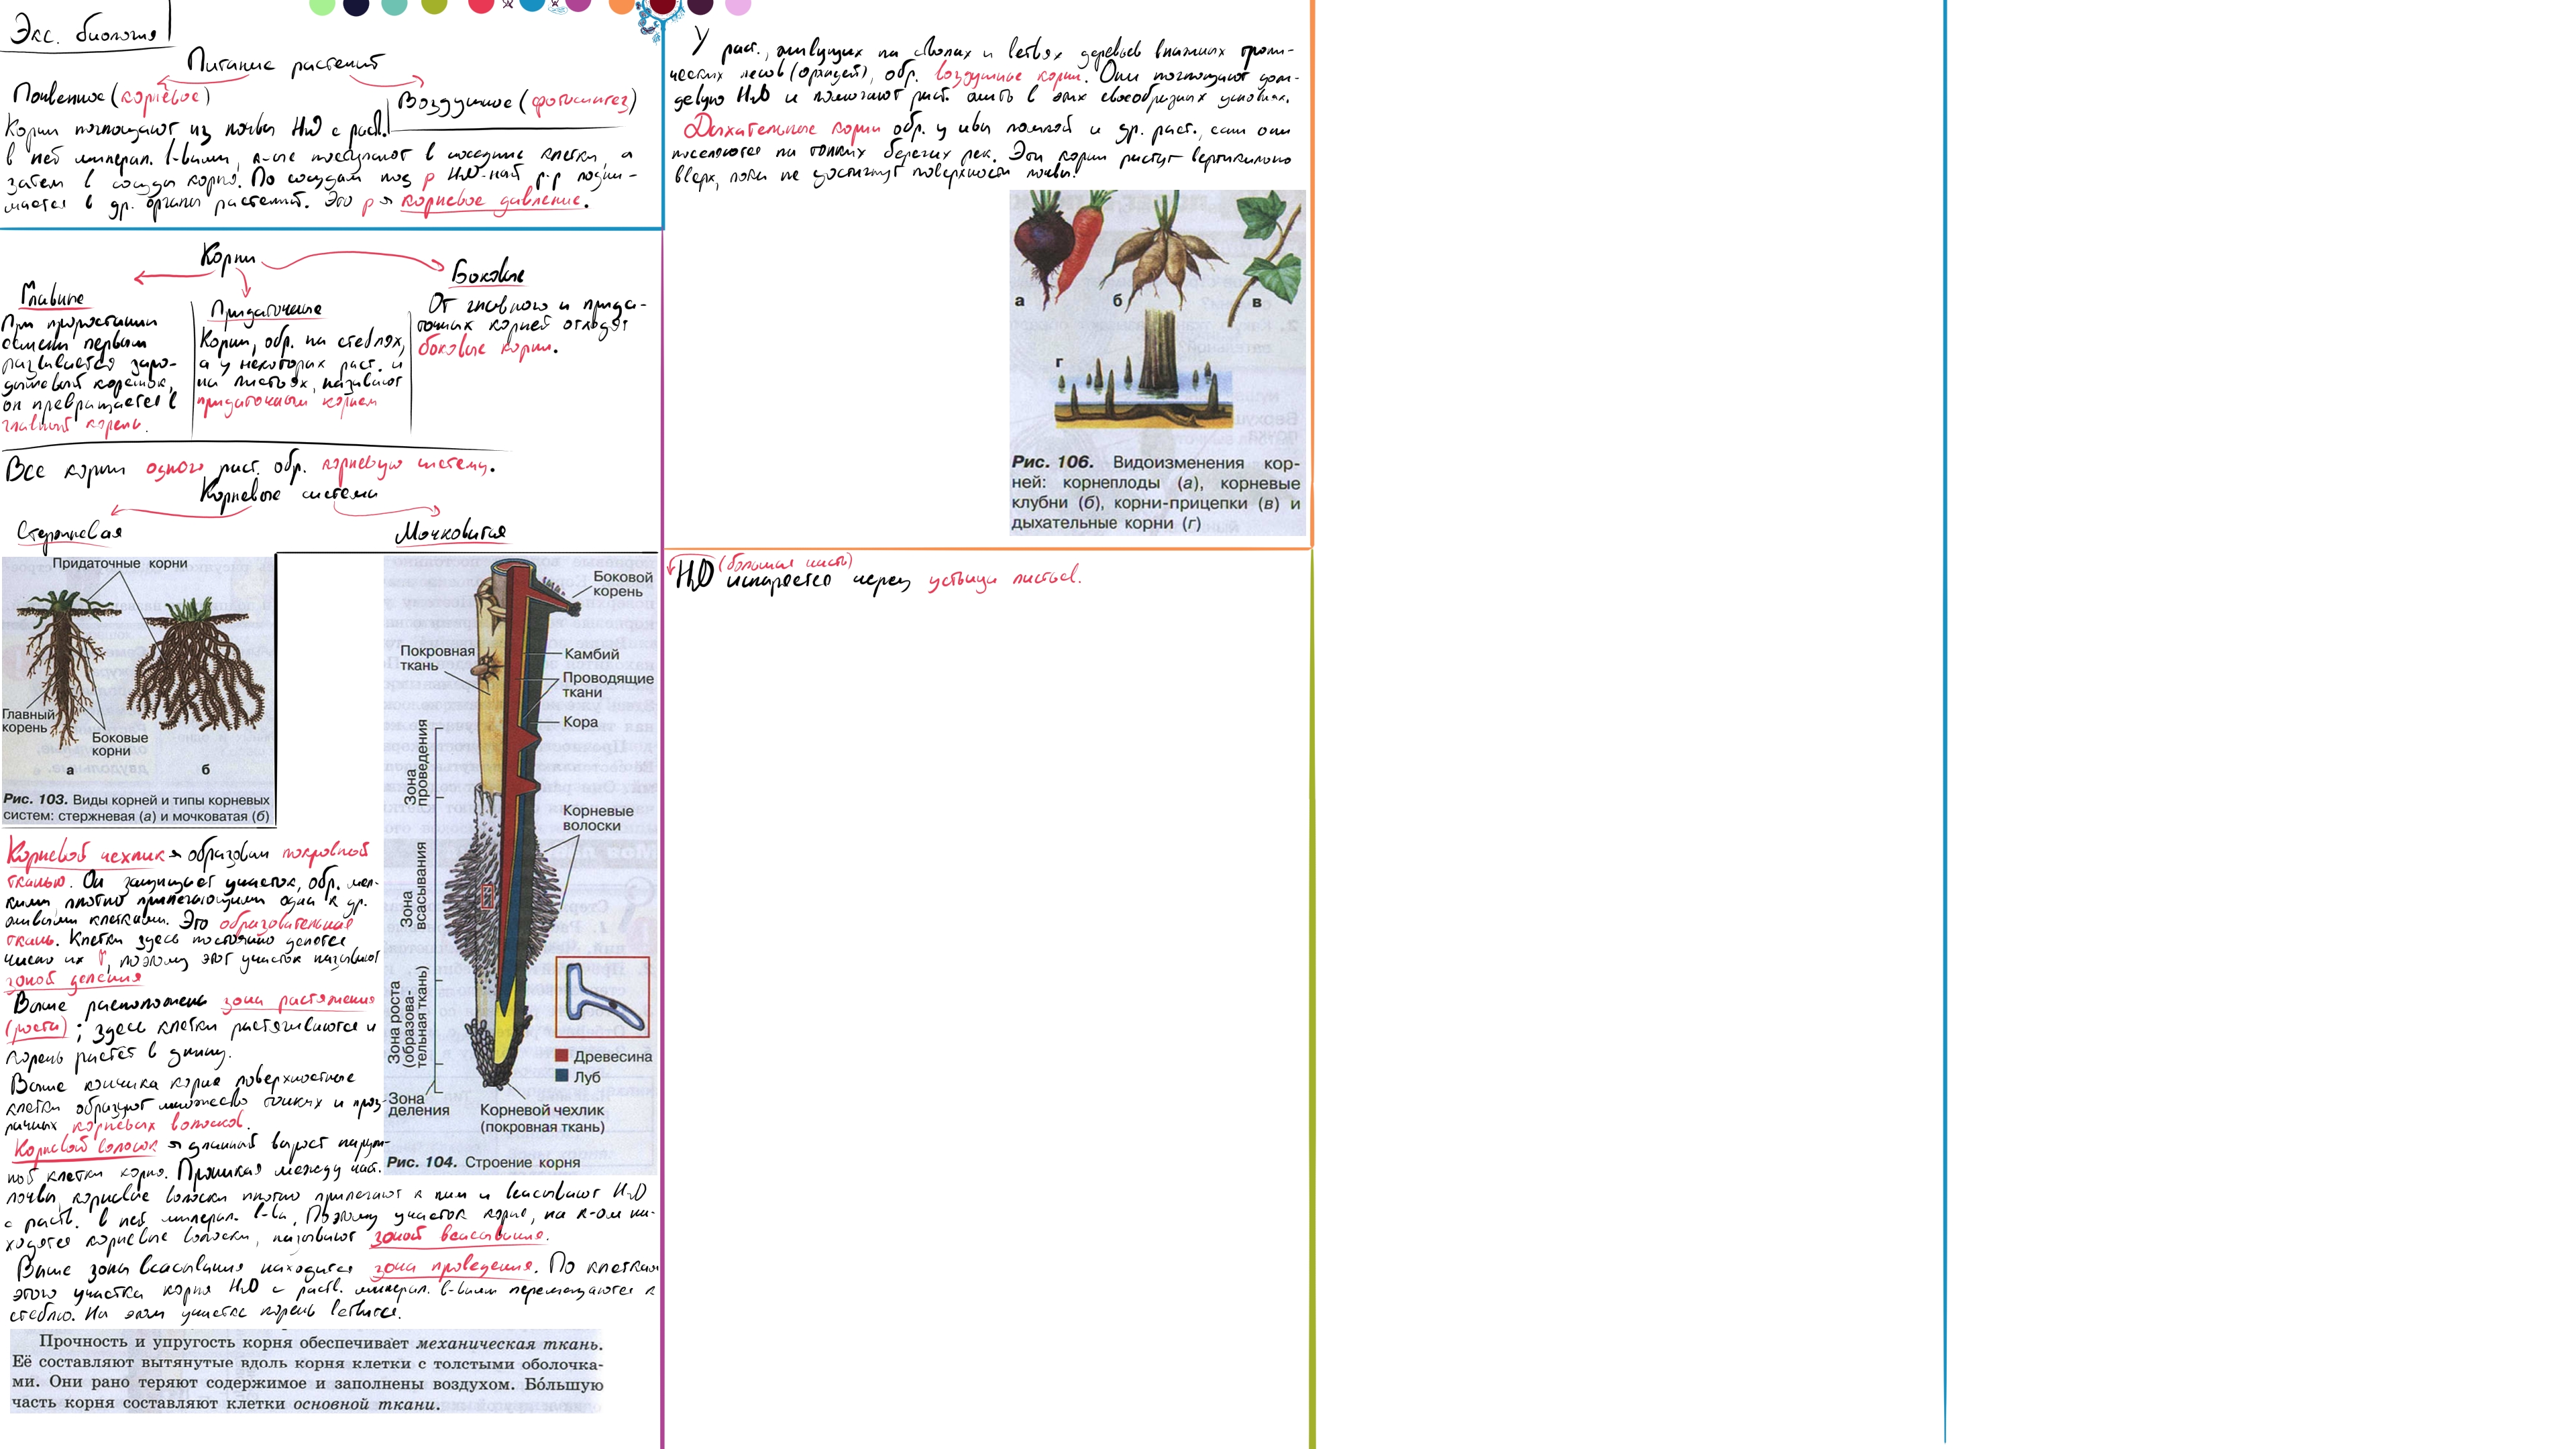 Экс. биология
Питание растений
Почвенное (корневое)
Воздушное (фотосинтез)
Корни поглощают из почвы H₂O с раств.
в ней минерал. в-вами, к-ые поступают в соседние клетки, а
затем в сосуды корня. По сосудам под p H₂O-ный р-р подни-
мается в др. органы растений. Это p я корневое давление.
Корни
Главные
При прорастании
семени первым
развивается заро-
дышевый корешок,
он превращается в
главный корень.
Придаточные
Корни, обр. на стеблях,
а у некоторых раст. и
на листьях, называют
придаточными корнем
Боковые
От главного и прида-
точных корней отходят
боковые корни.
Все корни одного раст. обр. корневую систему.
Корневые системы
Стержневая
Мочковатая
Придаточные корни
Главный
корень
Боковые
корни
а
б
Рис. 103. Виды корней и типы корневых
систем: стержневая (а) и мочковатая (б)
Боковой
корень
Покровная
ткань
Камбий
Проводящие
ткани
Кора
Зона
проведения
Корневые
волоски
Зона
всасывания
Зона роста
(образова-
тельная ткань)
Древесина
Луб
Зона
деления
Корневой чехлик
(покровная ткань)
Рис. 104. Строение корня
Корневой чехлик я образован покровной
тканью. Он защищает участок, обр. мел-
кими, плотно прилегающими одна к др.
живыми клетками. Это образовательная
ткань. Клетки здесь постоянно делятся
число их ↑, поэтому этот участок называют
зоной деления
Выше расположена зона растяжения
(роста); здесь клетки растягиваются и
корень растёт в длину.
Выше кончика корня поверхностные
клетки образуют множество тонких и проз-
рачных корневых волосков.
Корневой волосок я длинный вырост наруж-
ной клетки корня. Проникая между част.
почвы, корневые волоски плотно прилегают к ним и всасывают H₂O
с раств. в ней минерал. в-ва. Поэтому участок корня, на к-ом на-
ходятся корневые волоски, называют зоной всасывания.
Выше зоны всасывания находится зона проведения. По клеткам
этого участка корня H₂O с раств. минерал. в-вами перемещаются к
стеблю. На этом участке корень ветвится.
Прочность и упругость корня обеспечивает механическая ткань.
Её составляют вытянутые вдоль корня клетки с толстыми оболочка-
ми. Они рано теряют содержимое и заполнены воздухом. Бо́льшую
часть корня составляют клетки основной ткани.
У раст., живущих на стволах и ветвях деревьев влажных тропи-
ческих лесов (орхидей), обр. воздушные корни. Они поглощают дож-
девую H₂O и помогают раст. жить в этих своеобразных условиях.
Дыхательные корни обр. у ивы ломкой и др. раст., если они
поселяются на топких берегах рек. Эти корни растут вертикально
вверх, пока не достигнут поверхности почвы.
а
б
в
г
Рис. 106. Видоизменения кор-
ней: корнеплоды (а), корневые
клубни (б), корни-прицепки (в) и
дыхательные корни (г)
(большая часть)
H₂O испаряется через устьица листьев.